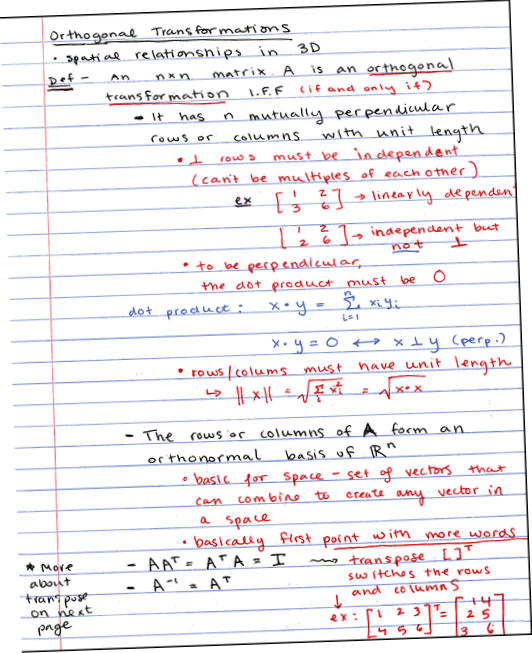 Orthogonal Transformations
• spatial relationships in 3D
Def - An nxn matrix A is an orthogonal
transformation I.F.F (if and only if)
- It has n mutually perpendicular
rows or columns with unit length
• ⊥ rows must be independent
(can't be multiples of each other)
ex [1 2
3 6] → linearly dependen
[1 2
2 6] → independent but
not ⊥
• to be perpendicular,
the dot product must be 0
dot product: x • y = n Σ i=1 xᵢ yᵢ
x • y = 0 ↔ x ⊥ y (perp.)
• rows/colums must have unit length
↳ ||x|| = √Σᵢ xᵢ² = √x•x
- The rows or columns of A form an
orthonormal basis of ℝⁿ
• basic for space - set of vectors that
can combine to create any vector in
a space
• basically first point with more words
* More
about
transpose
on next
page
- AAᵀ = AᵀA = I ⇝ transpose [ ]ᵀ
switches the rows
and columns
- A⁻¹ = Aᵀ
↓
ex: [1 2 3
4 5 6]ᵀ = [1 4
2 5
3 6]